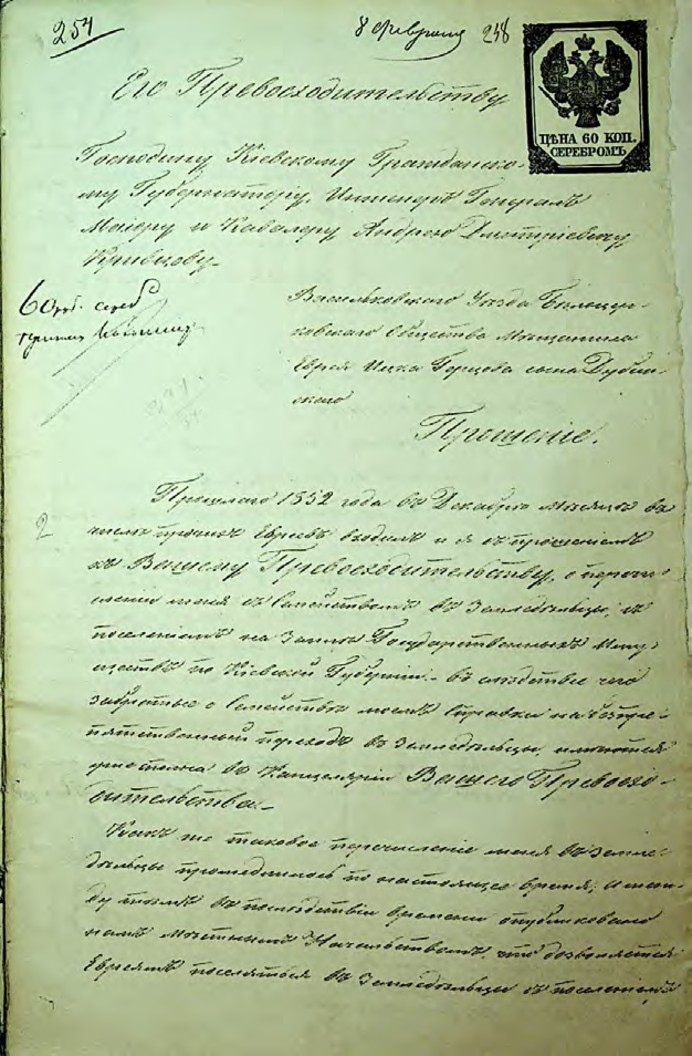 254
8 Февраля 258
ЦѢНА 60 КОП.
СЕРЕБРОМЪ
Его Превосходительству
Господину Кіевскому Гражданско-
му Губернатору, Инженеръ Генералъ
Маіору и Кавалеру Андрею Дмитріевичу
Кривцову
60 коп. сереб
Васильковскаго Уезда Бѣлоцер-
ковскаго Общества Мѣщанина
Еврея Ицка Герцова сына Дубин-
скаго
Прошеніе.
2
Прошлаго 1852 года въ Декабрѣ Мѣсяцѣ въ
числѣ прочихъ Евреевъ входилъ и я съ прошеніемъ
къ Вашему Превосходительству, о перечи-
сленіи меня съ Семействомъ въ Земледѣльцы, съ
поселеніемъ на Земли Государственныхъ Иму-
ществъ по Кіевской Губерніи,- въ слѣдствіе чего
забранные о Семействѣ моемъ Справки на безпре-
пятственный переходъ въ Земледѣльцы, имѣются
уже въ Канцеляріи Вашего Превосхо-
дительства.-
Какъ же таковое перечисленіе меня въ Земле-
дѣльцы промедлилось по настоящее время, а меж-
ду темъ въ послѣдствіи времени опубликовано
намъ Мѣстнымъ Начальствомъ, что дозволяется
Евреямъ поселяться въ Земледѣльцы съ поселеніемъ